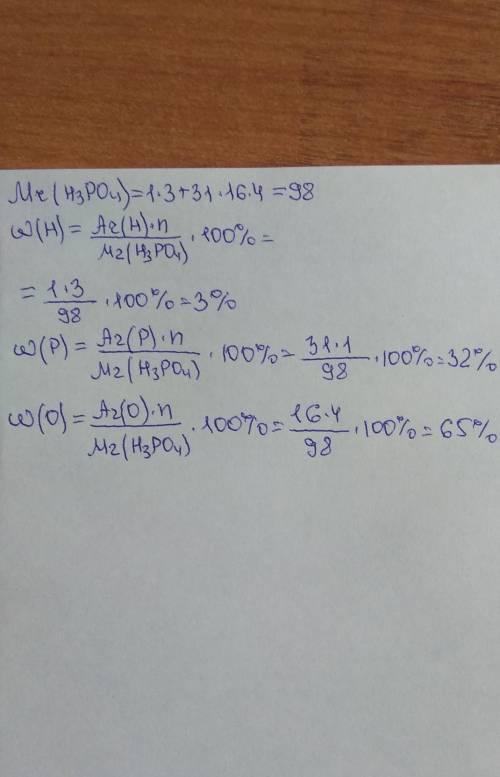 Mr(H₃PO₄)=1·3+31·16·4=98
ω(H) = Ar(H)·n / Mr(H₃PO₄) · 100% =
= 1·3 / 98 · 100% = 3%
ω(P) = Ar(P)·n / Mr(H₃PO₄) · 100% = 31·1 / 98 · 100% = 32%
ω(O) = Ar(O)·n / Mr(H₃PO₄) · 100% = 16·4 / 98 · 100% = 65%